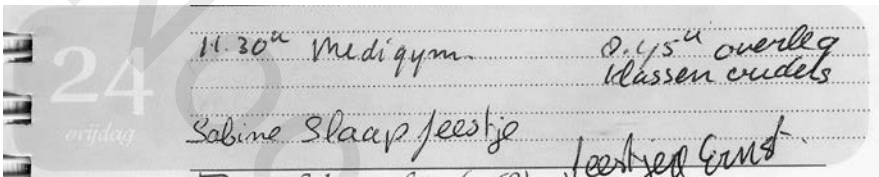 24
vrijdag
11.30u Medigym
8.45u overleg
klassenouders
Sabine Slaapfeestje
feestje Ernst